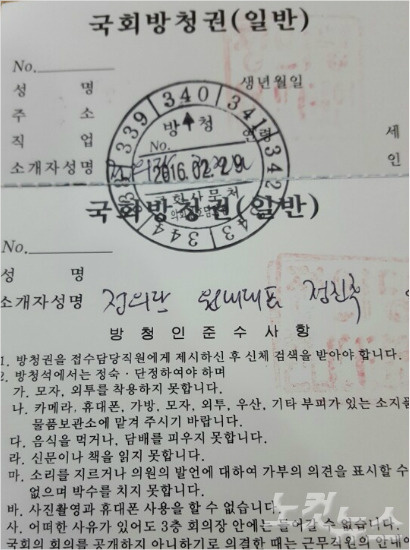 국회방청권(일반)
No.
성 명 생년월일
주 소
직 업 세
소개자성명 인
339 340 341 342 343 344
방 청
No.
2016.02.29.
국회방청권(일반)
No.
성 명
소개자성명 정의당 원내대표 정진후
방 청 인 준 수 사 항
1. 방청권을 접수담당직원에게 제시하신 후 신체 검색을 받아야 합니다.
2. 방청석에서는 정숙·단정하여야 하며
가. 모자, 외투를 착용하지 못합니다.
나. 카메라, 휴대폰, 가방, 모자, 외투, 우산, 기타 부피가 있는 소지품
물품보관소에 맡겨 주시기 바랍니다.
다. 음식을 먹거나, 담배를 피우지 못합니다.
라. 신문이나 책을 읽지 못합니다.
마. 소리를 지르거나 의원의 발언에 대하여 가부의 의견을 표시할 수
없으며 박수를 치지 못합니다.
바. 사진촬영과 휴대폰 사용을 할 수 없습니다.
사. 어떠한 사유가 있어도 3층 회의장 안에는 들어갈 수 없습니다.
국회의 회의를 공개하지 아니하기로 의결한 때는 근무직원의 안내에
노컷뉴스